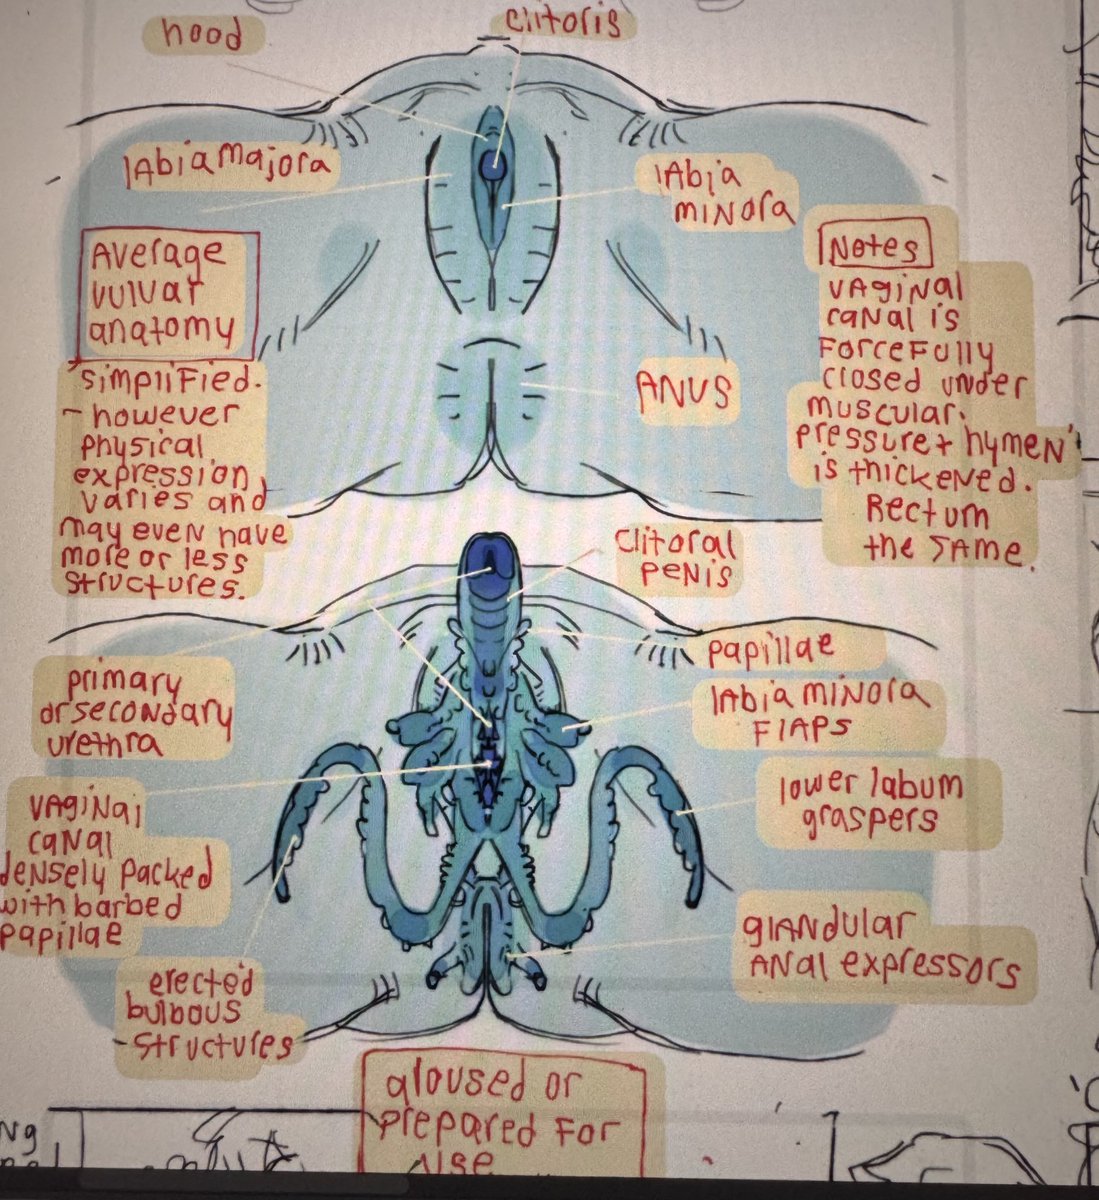 hood
clitoris
labia majora
labia
minora
Average
vulvar
anatomy
simplified.
- however
physical
expression
varies and
may even have
more or less
structures.
Notes
vaginal
canal is
forcefully
closed under
muscular
pressure + hymen
is thickened.
Rectum
the same.
ANUS
clitoral
penis
papillae
primary
or secondary
urethra
labia minora
flaps
lower labum
graspers
vaginal
canal
densely packed
with barbed
papillae
glandular
anal expressors
erected
bulbous
structures
aroused or
prepared for
use